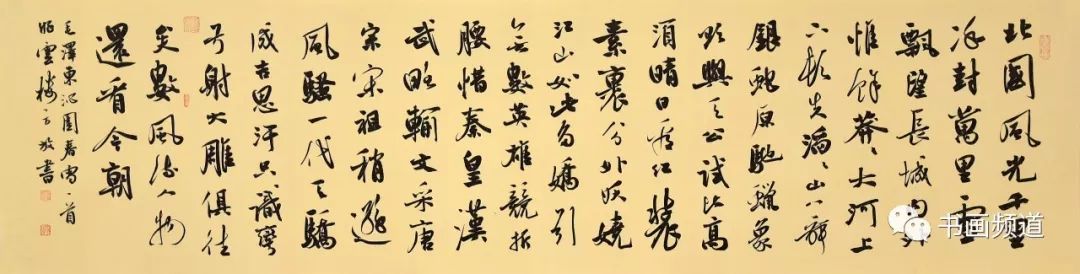 北國風光千里
冰封萬里雪
飄望長城內外
惟餘莽々大河上
下頓失滔々山舞
銀蛇原馳蠟象
欲與天公試比高
須晴日看紅裝
素裹分外妖嬈
江山如此多嬌引
無數英雄競折
腰惜秦皇漢
武略輸文采唐
宗宋祖稍遜
風騷一代天驕
成吉思汗只識彎
弓射大雕俱往
矣數風流人物
還看今朝
毛澤東沁園春雪一首
雲樓書
书画频道